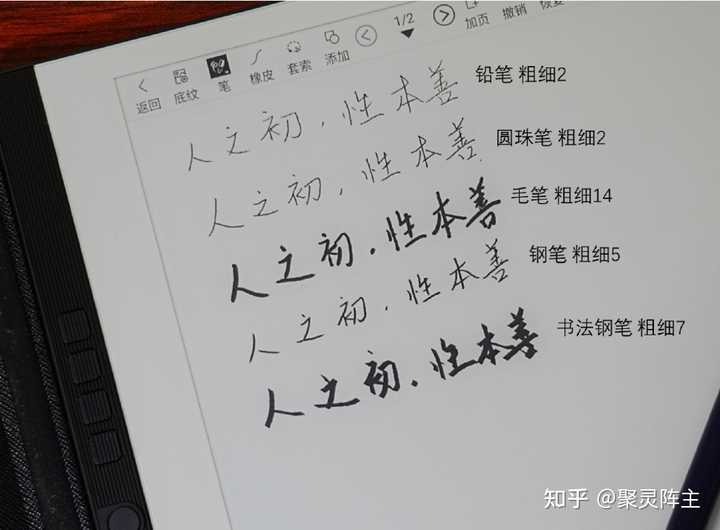 返回 底纹 笔 橡皮 套索 添加 1/2 加页 撤销 恢复
人之初，性本善 铅笔 粗细2
人之初，性本善 圆珠笔 粗细2
人之初，性本善 毛笔 粗细14
人之初，性本善 钢笔 粗细5
人之初，性本善 书法钢笔 粗细7
知乎 @聚灵阵主